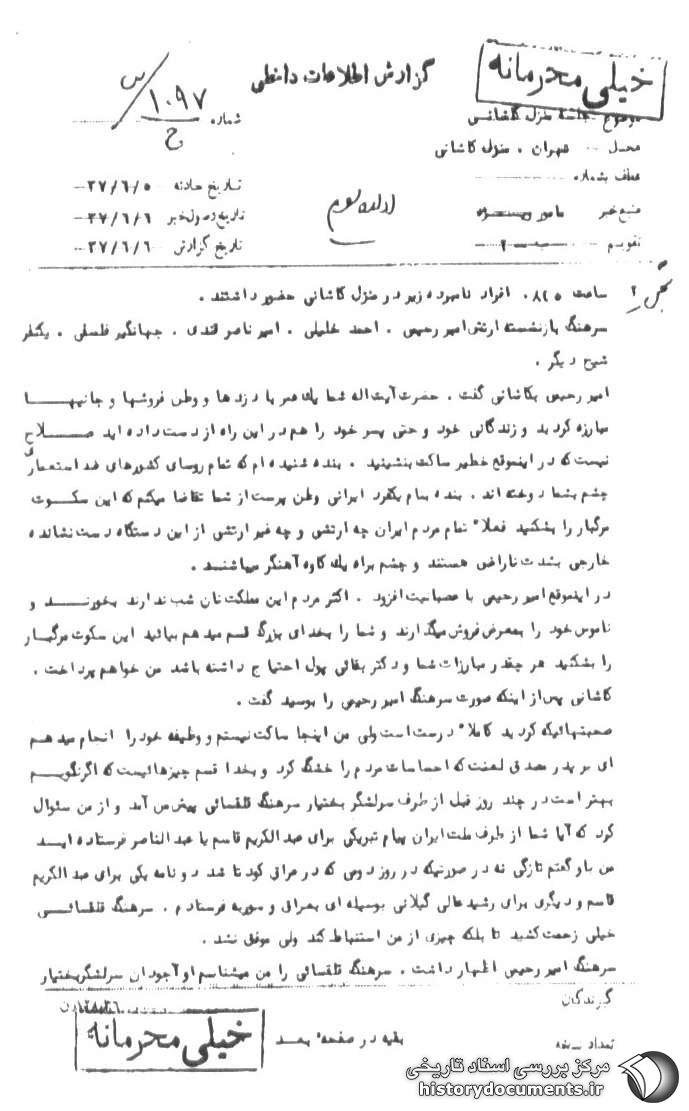 خیلی محرمانه
گزارش اطلاعات داخلی
۱۰۹۷
شماره
موضوع جلسه منزل کاشانی
محل تهران . منزل کاشانی
عطف بشماره
تاریخ حادثه ۳۷/۶/۵
منبع خبر مامور ویژه
تاریخ وصول خبر ۳۷/۶/۶
تقویم
تاریخ گزارش ۳۷/۶/۶
ساعت ۸۲۵۰ افراد نامبرده زیر در منزل کاشانی حضور داشتند .
سرهنگ بازنشسته ارتش امیر رحیمی . احمد خلیلی . امیر ناصر قندی . جهانگیر فلسفی . یکنفر
شیخ دیگر .
امیر رحیمی بکاشانی گفت . حضرت آیت اله شما یك عمر با دزدها و وطن فروشها و جانیها
مبارزه کردید و زندگانی خود و حتی پسر خود را هم در این راه از دست داده اید صلاح
نیست که در اینموقع خطیر ساکت بنشینید . بنده شنیده ام که تمام روسای کشورهای ضد استعماری
چشم بشما دوخته اند . بنده بنام یکفرد ایرانی وطن پرست از شما تقاضا میکنم که این سکوت
مرگبار را بشکنید فعلا" تمام مردم ایران چه ارتشی و چه غیر ارتشی از این دستگاه دست نشانده
خارجی بشدت ناراضی هستند و چشم براه یك کاوه آهنگر میباشند .
در اینموقع امیر رحیمی با عصبانیت افزود . اکثر مردم این مملکت نان شب ندارند بخورند و
ناموس خود را بمعرض فروش میگذارند و شما را بخدای بزرگ قسم میدهم بیائید این سکوت مرگبار
را بشکنید هر چقدر مبارزات شما و دکتر بقائی پول احتیاج داشته باشد من خواهم پرداخت .
کاشانی پس از اینکه صورت سرهنگ امیر رحیمی را بوسید گفت .
صحبتهائیکه کردید کاملا" درست است ولی من اینجا ساکت نیستم و وظیفه خود را انجام میدهم
ای بر پدر مصدق لعنت که احساسات مردم را خفگ کرد و بخدا قسم چیزهائیست که اگر نگویم
بهتر است در چند روز قبل از طرف سرلشگر بختیار سرهنگ قلقسائی پیش من آمد و از من سئوال
کرد که آیا شما از طرف ملت ایران پیام تبریکی برای عبدالکریم قاسم یا عبدالناصر فرستاده اید
من باو گفتم تازگی نه در صورتیکه در روز دومی که در عراق کودتا شد دو نامه یکی برای عبدالکریم
قاسم و دیگری برای رشید عالی گیلانی بوسیله ای بعراق و سوریه فرستادم . سرهنگ قلقسائی
خیلی زحمت کشید تا بلکه چیزی از من استنباط کند ولی موفق نشد .
سرهنگ امیر رحیمی اظهار داشت . سرهنگ قلقسائی را من میشناسم او آجودان سرلشگر بختیار
گیرندگان
بقیه در صفحه" بعد
خیلی محرمانه
تعداد نسخه
مرکز بررسی اسناد تاریخی
historydocuments.ir